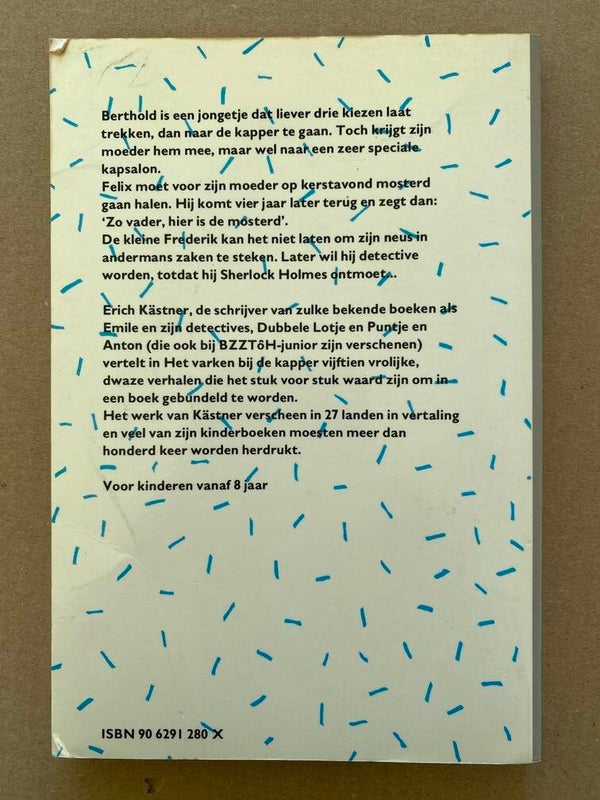 Berthold is een jongetje dat liever drie kiezen laat
trekken, dan naar de kapper te gaan. Toch krijgt zijn
moeder hem mee, maar wel naar een zeer speciale
kapsalon.
Felix moet voor zijn moeder op kerstavond mosterd
gaan halen. Hij komt vier jaar later terug en zegt dan:
‘Zo vader, hier is de mosterd’.
De kleine Frederik kan het niet laten om zijn neus in
andermans zaken te steken. Later wil hij detective
worden, totdat hij Sherlock Holmes ontmoet...
Erich Kästner, de schrijver van zulke bekende boeken als
Emile en zijn detectives, Dubbele Lotje en Puntje en
Anton (die ook bij BZZTôH-junior zijn verschenen)
vertelt in Het varken bij de kapper vijftien vrolijke,
dwaze verhalen die het stuk voor stuk waard zijn om in
een boek gebundeld te worden.
Het werk van Kästner verscheen in 27 landen in vertaling
en veel van zijn kinderboeken moesten meer dan
honderd keer worden herdrukt.
Voor kinderen vanaf 8 jaar
ISBN 90 6291 280 X